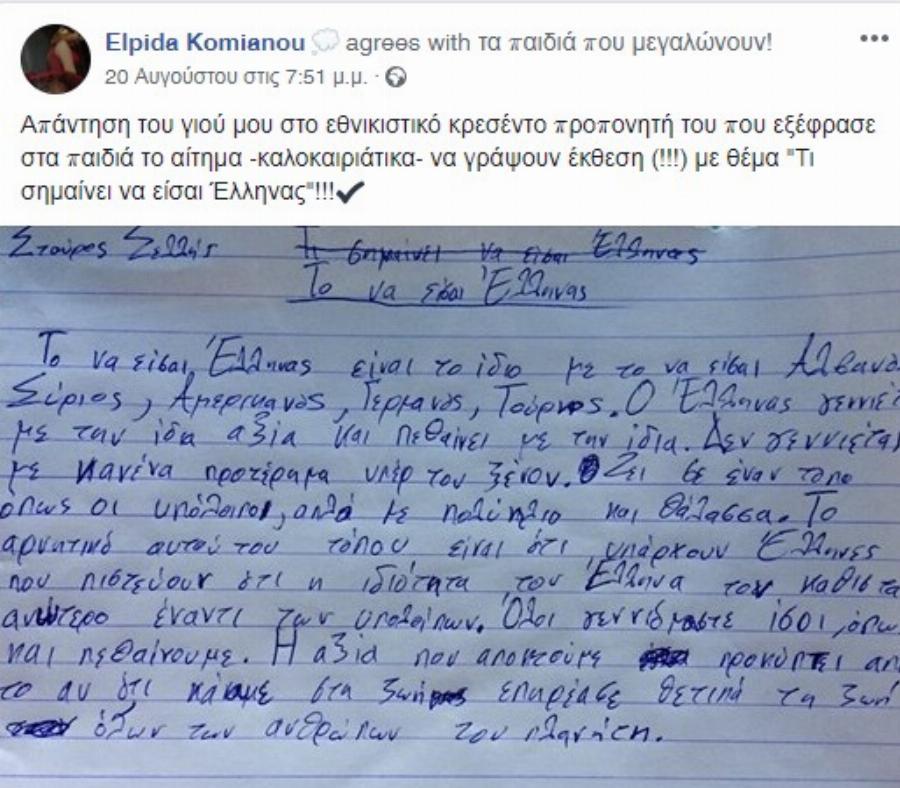 Elpida Komianou agrees with τα παιδιά που μεγαλώνουν!
20 Αυγούστου στις 7:51 μ.μ. ·
Απάντηση του γιού μου στο εθνικιστικό κρεσέντο προπονητή του που εξέφρασε
στα παιδιά το αίτημα -καλοκαιριάτικα- να γράψουν έκθεση (!!!) με θέμα "Τι
σημαίνει να είσαι Έλληνας"!!!✔
Σταύρος Σελλής Τι σημαίνει να είσαι Έλληνας
Το να είσαι Έλληνας
Το να είσαι Έλληνας είναι το ίδιο με το να είσαι Αλβανό
Σύριος, Αμερικανός, Γερμανός, Τούρκος. Ο Έλληνας γεννιέ
με την ίδια αξία και πεθαίνει με την ίδια. Δεν γεννιέται
με κανένα προτέραμα υπέρ του ξένου. Ζει σε έναν τόπο
όπως οι υπόλοιποι, αλλά με πολύ ήλιο και θάλασσα. Το
αρνητικό αυτού του τόπου είναι ότι υπάρχουν Έλληνες
που πιστεύουν ότι η ιδιότητα του Έλληνα τον καθιστά
ανώτερο έναντι των υπολοίπων. Όλοι γεννιόμαστε ίσοι, όπω
και πεθαίνουμε. Η αξία που αποκτούμε προκύπτει απ
το αν ότι κάναμε στη ζωή επηρέασε θετικά τη ζωή
όλων των ανθρώπων του πλανήτη.